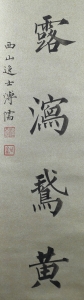 露瀉鵞黄
西山逸士溥儒